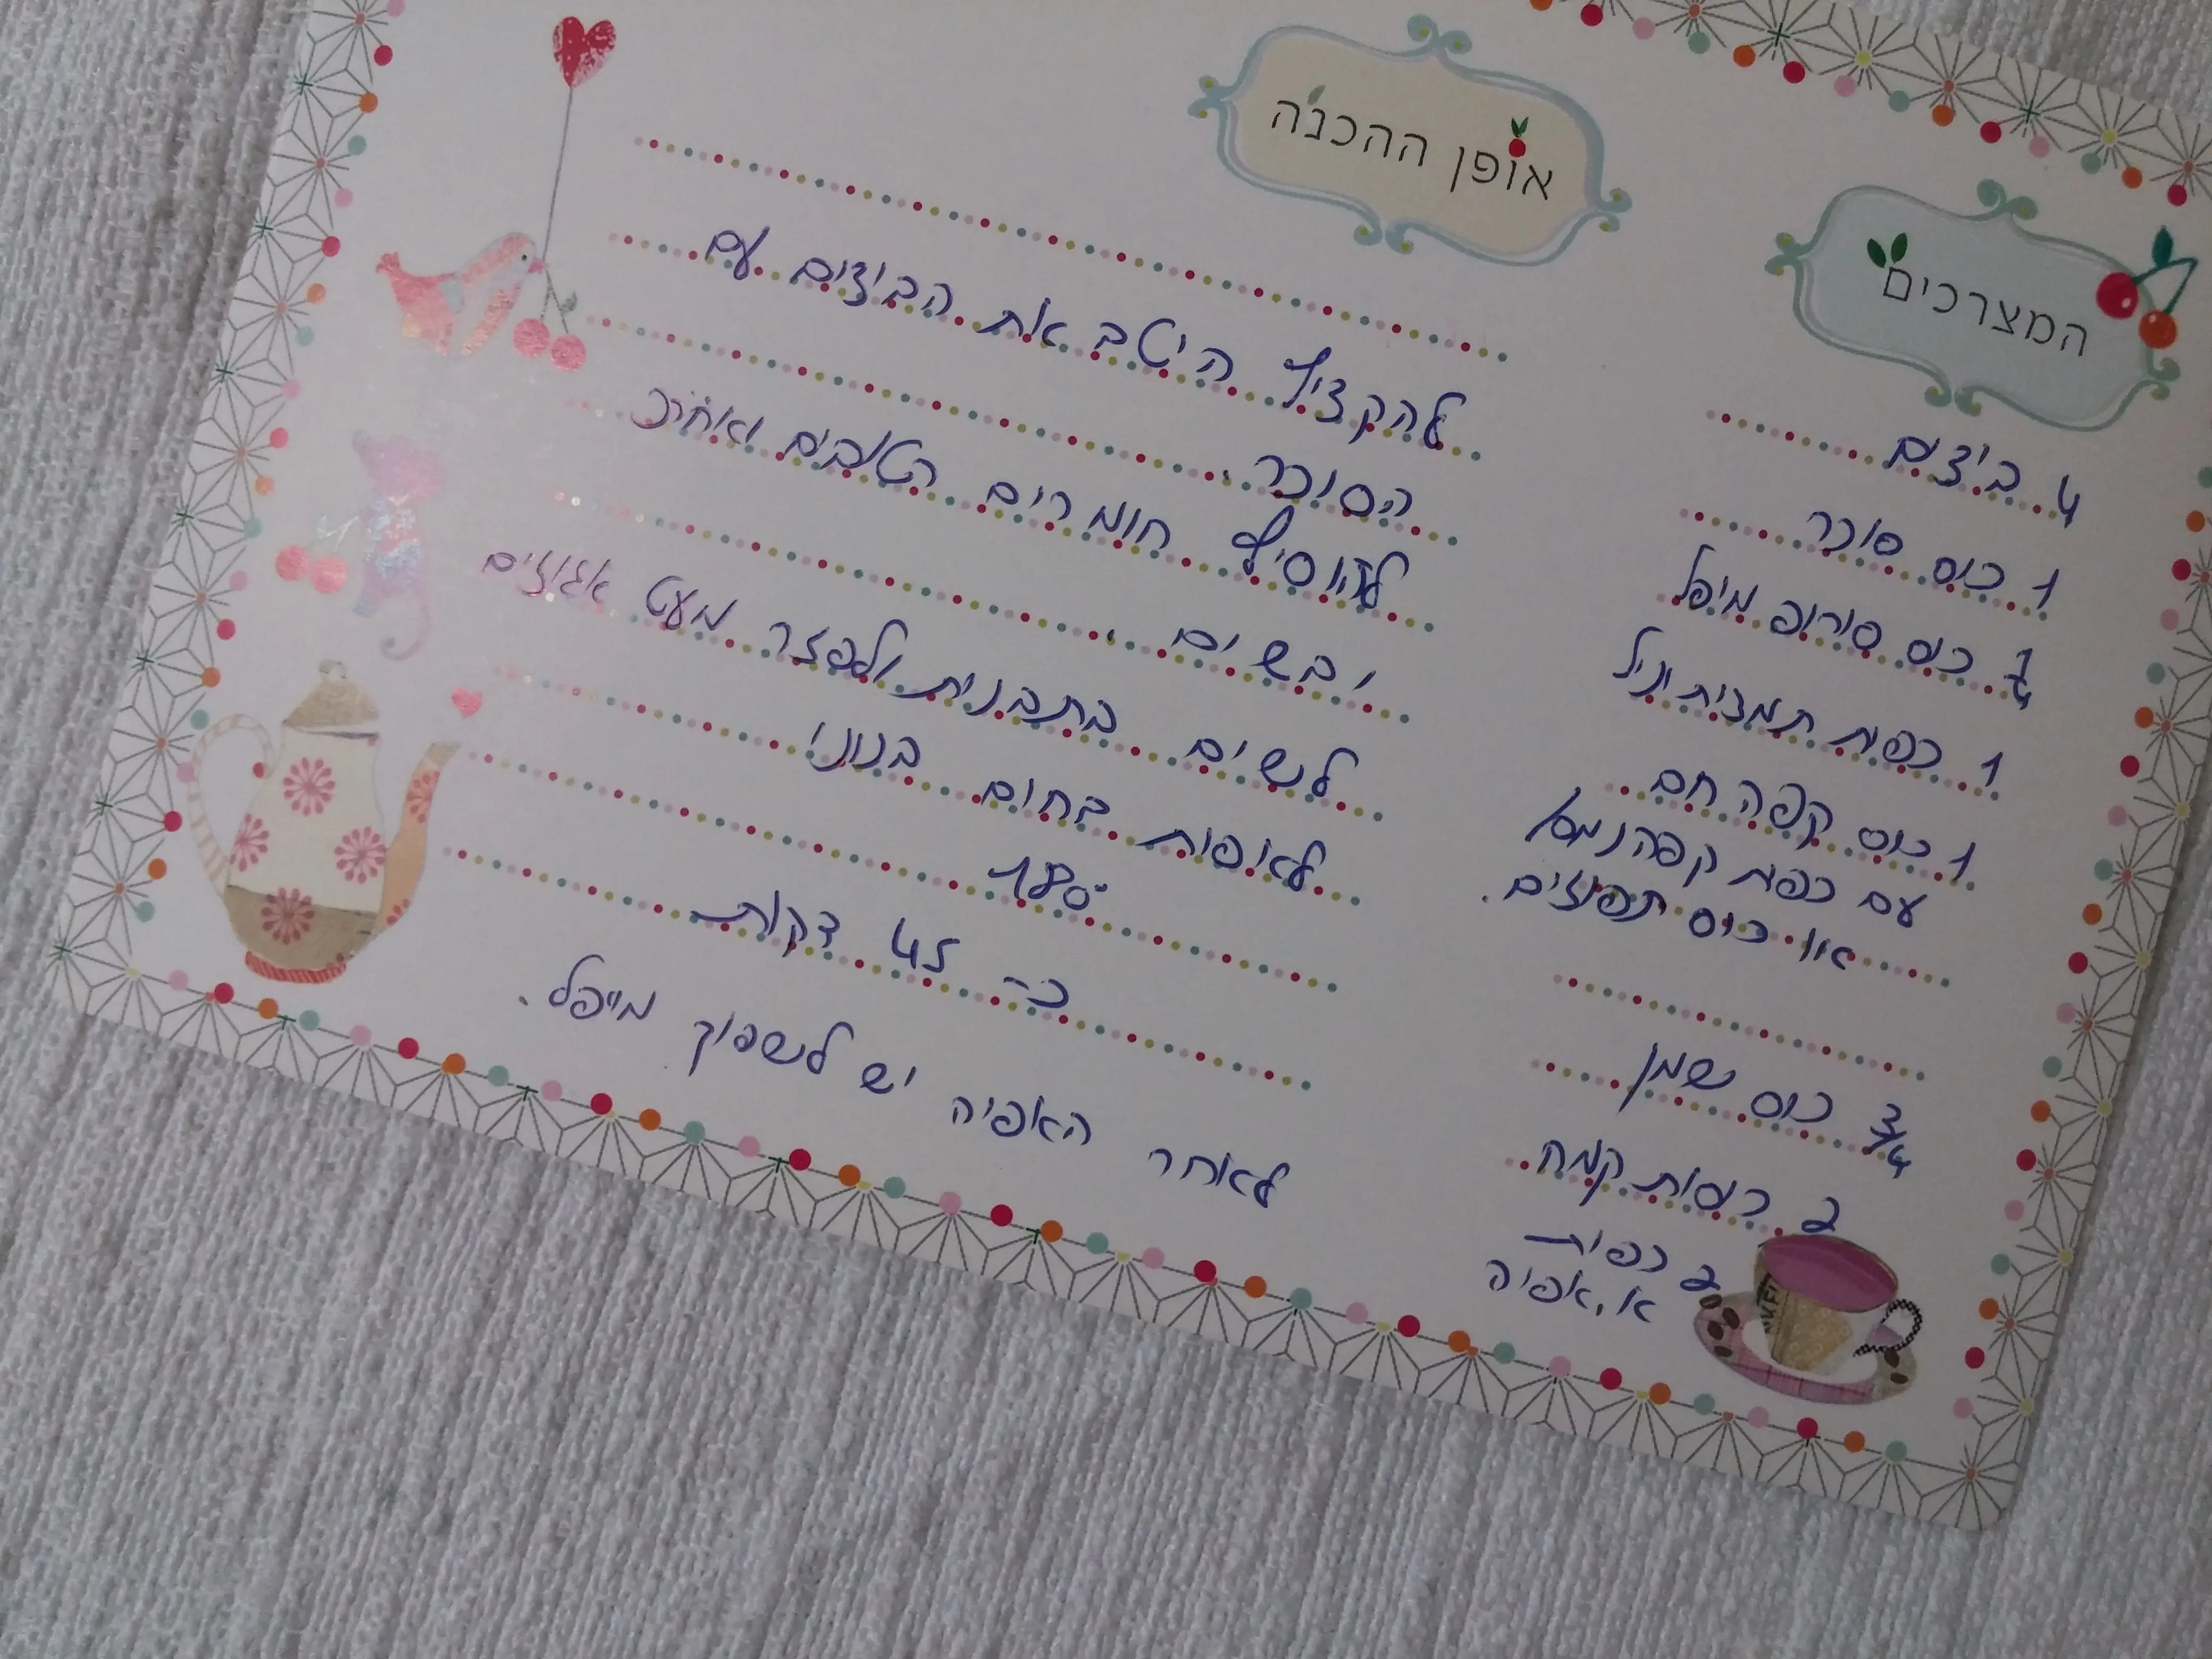 המצרכים
4 ביצים
1 כוס סוכר
1/4 כוס סירופ מיפל
1 כפית תמצית וניל
1 כוס קפה חם
עם כפית קפה נמס/
או כוס תפוזים.
3/4 כוס שמן
2 כוסות קמח
2 כפיות
א. אפיה
אופן ההכנה
להקציף היטב את הביצים עם
הסוכר.
להוסיף חומרים רטובים ואח"כ
יבשים.
לשים בתבנית ולפזר מעט אגוזים
לאפות בחום בינוני
180°
כ- 45 דקות
לאחר האפיה יש לשפוך מייפל.